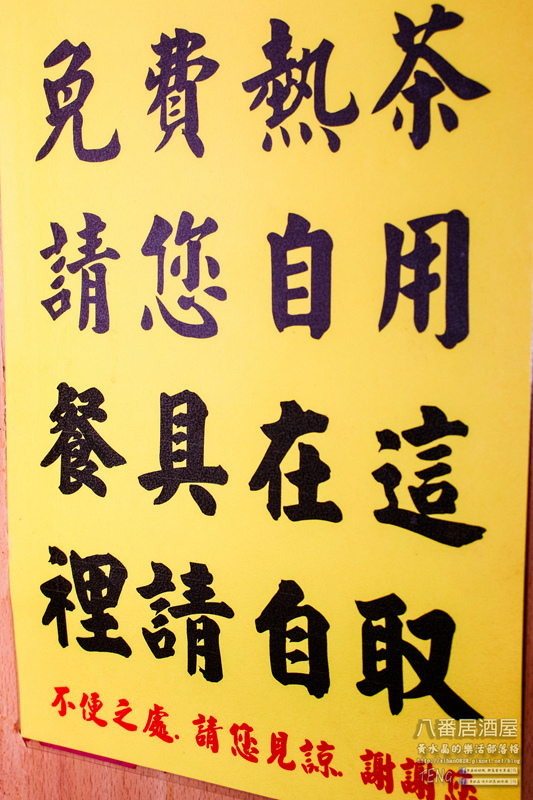 免費熱茶
請您自用
餐具在這
裡請自取
不便之處.請您見諒.謝謝您
八番居酒屋
黃水晶的樂活部落格
TENG